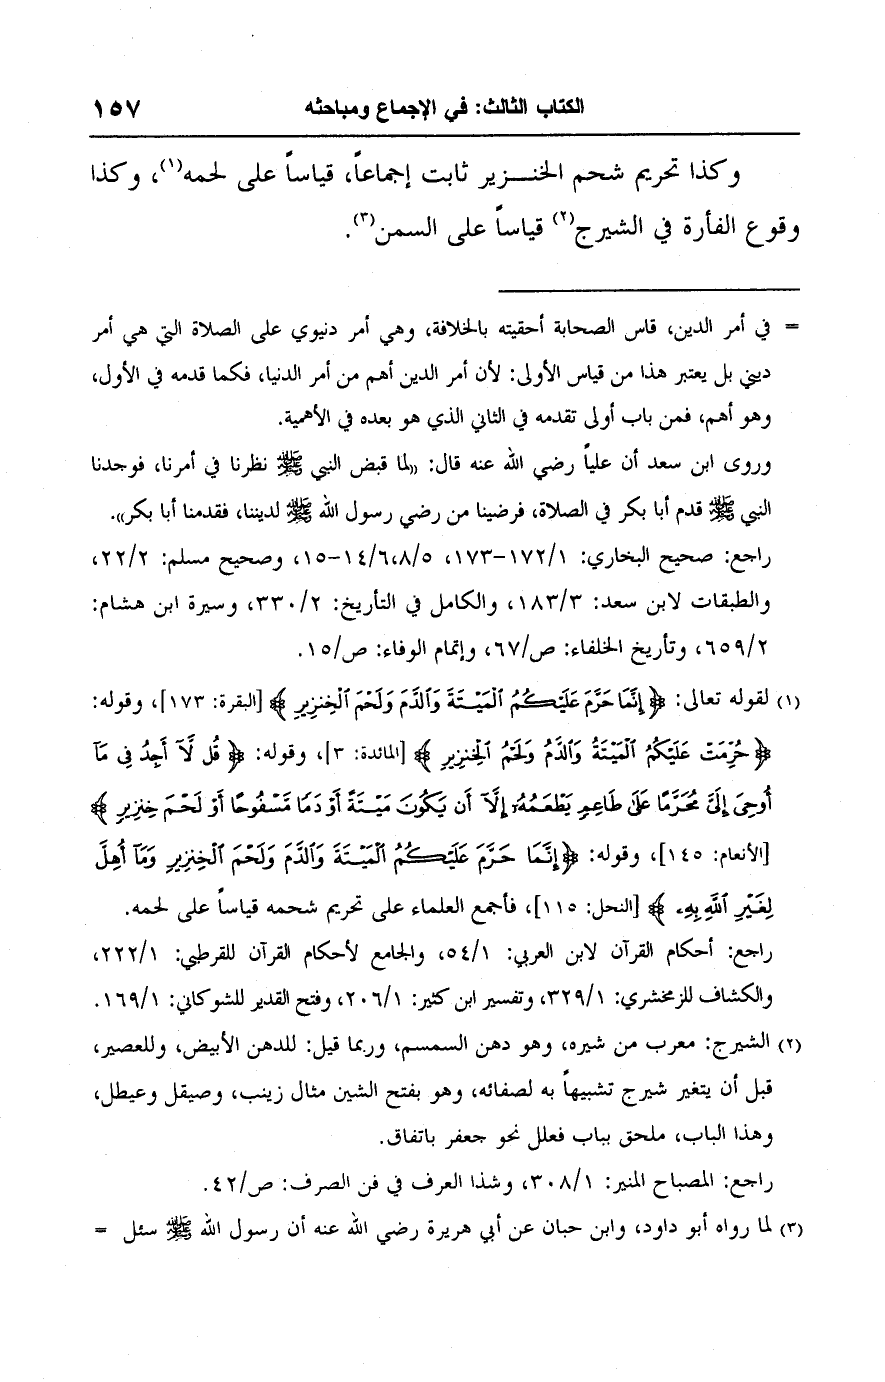 الكتاب الثالث: في الإجماع ومباحثه ١٥٧
وكذا تحريم شحم الخنـزير ثابت إجماعاً، قياساً على لحمه(١)، وكذا
وقوع الفأرة في الشيرج(٢) قياساً على السمن(٣).
= في أمر الدين، قاس الصحابة أحقيته بالخلافة، وهي أمر دنيوي على الصلاة التي هي أمر
ديني بل يعتبر هذا من قياس الأولى: لأن أمر الدين أهم من أمر الدنيا، فكما قدمه في الأول،
وهو أهم، فمن باب أولى تقدمه في الثاني الذي هو بعده في الأهمية.
وروى ابن سعد أن علياً رضي الله عنه قال: «لما قبض النبي ﷺ نظرنا في أمرنا، فوجدنا
النبي ﷺ قدم أبا بكر في الصلاة، فرضينا من رضي رسول الله ﷺ لديننا، فقدمنا أبا بكر».
راجع: صحيح البخاري: ١/١٧٢-١٧٣، ٥/٨،٦/١٤-١٥، وصحيح مسلم: ٢/٢٢،
والطبقات لابن سعد: ٣/١٨٣، والكامل في التأريخ: ٢/٣٣٠، وسيرة ابن هشام:
٢/٦٥٩، وتأريخ الخلفاء: ص/٦٧، وإتمام الوفاء: ص/١٥.
(١) لقوله تعالى: ﴿إِنَّمَا حَرَّمَ عَلَيْكُمُ ٱلْمَيْتَةَ وَٱلدَّمَ وَلَحْمَ ٱلْخِنزِيرِ﴾ [البقرة: ١٧٣]، وقوله:
﴿حُرِّمَتْ عَلَيْكُمُ ٱلْمَيْتَةُ وَٱلدَّمُ وَلَحْمُ ٱلْخِنزِيرِ﴾ [المائدة: ٣]، وقوله: ﴿قُل لَّآ أَجِدُ فِى مَآ
أُوحِىَ إِلَىَّ مُحَرَّمًا عَلَىٰ طَاعِمٍ يَطْعَمُهُۥٓ إِلَّآ أَن يَكُونَ مَيْتَةً أَوْ دَمًا مَّسْفُوحًا أَوْ لَحْمَ خِنزِيرٍ﴾
[الأنعام: ١٤٥]، وقوله: ﴿إِنَّمَا حَرَّمَ عَلَيْكُمُ ٱلْمَيْتَةَ وَٱلدَّمَ وَلَحْمَ ٱلْخِنزِيرِ وَمَآ أُهِلَّ
لِغَيْرِ ٱللَّهِ بِهِۦ﴾ [النحل: ١١٥]، فأجمع العلماء على تحريم شحمه قياساً على لحمه.
راجع: أحكام القرآن لابن العربي: ١/٥٤، والجامع لأحكام القرآن للقرطبي: ١/٢٢٢،
والكشاف للزمخشري: ١/٣٢٩، وتفسير ابن كثير: ١/٢٠٦، وفتح القدير للشوكاني: ١/١٦٩.
(٢) الشيرج: معرب من شيره، وهو دهن السمسم، وربما قيل: للدهن الأبيض، وللعصير،
قبل أن يتغير شيرج تشبيهاً به لصفائه، وهو بفتح الشين مثال زينب، وصيقل وعيطل،
وهذا الباب، ملحق بباب فعلل نحو جعفر باتفاق.
راجع: المصباح المنير: ١/٣٠٨، وشذا العرف في فن الصرف: ص/٤٢.
(٣) لما رواه أبو داود، وابن حبان عن أبي هريرة رضي الله عنه أن رسول الله ﷺ سئل =